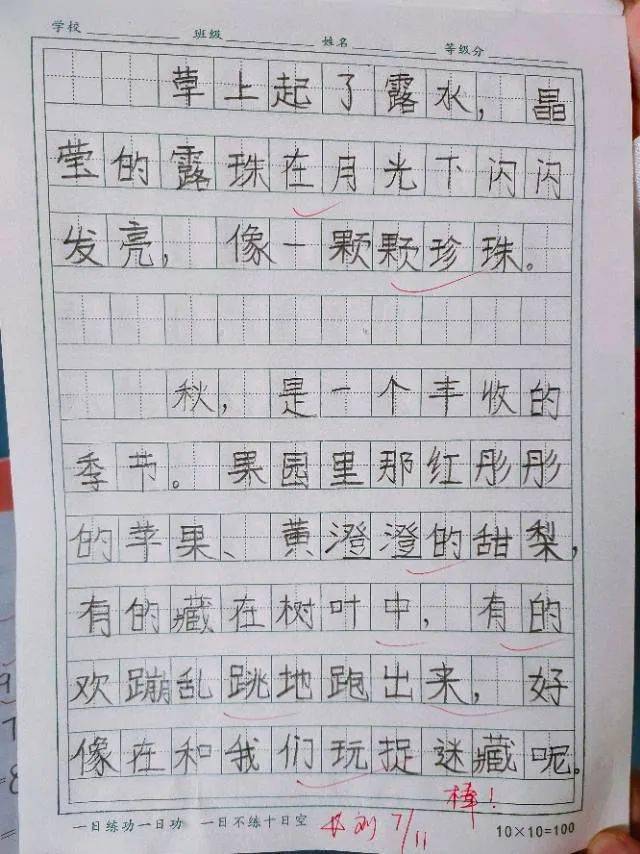 学校 班级 姓名 等级分
草上起了露水，晶
莹的露珠在月光下闪闪
发亮，像一颗颗珍珠。
秋，是一个丰收的
季节。果园里那红彤彤
的苹果、黄澄澄的甜梨，
有的藏在树叶中，有的
欢蹦乱跳地跑出来，好
像在和我们玩捉迷藏呢。
棒！
7/11
一日练功一日功 一日不练十日空 10×10=100